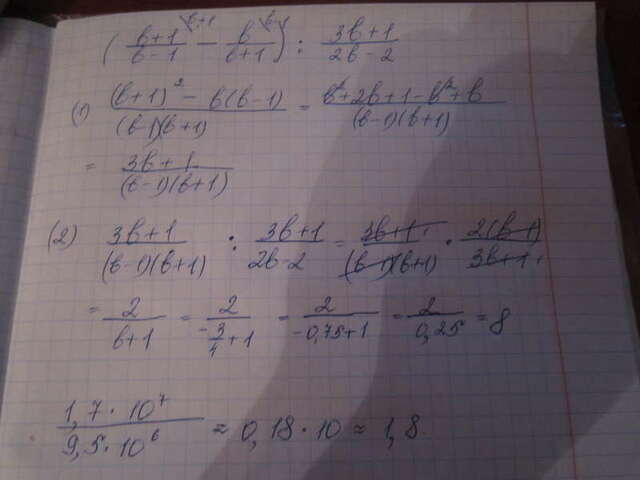 ( (b+1)/(b-1) \b+1 - b/(b+1) \b-1 ) : (3b+1)/(2b-2)
(1) ((b+1)² - b(b-1))/((b-1)(b+1)) = (b²+2b+1-b²+b)/((b-1)(b+1))
= (3b+1)/((b-1)(b+1))
(2) (3b+1)/((b-1)(b+1)) : (3b+1)/(2b-2) = (3b+1)/((b-1)(b+1)) · (2(b-1))/(3b+1)
= 2/(b+1) = 2/(-3/4+1) = 2/(-0,75+1) = 2/0,25 = 8
(1,7·10⁷)/(9,5·10⁶) ≈ 0,18·10 ≈ 1,8